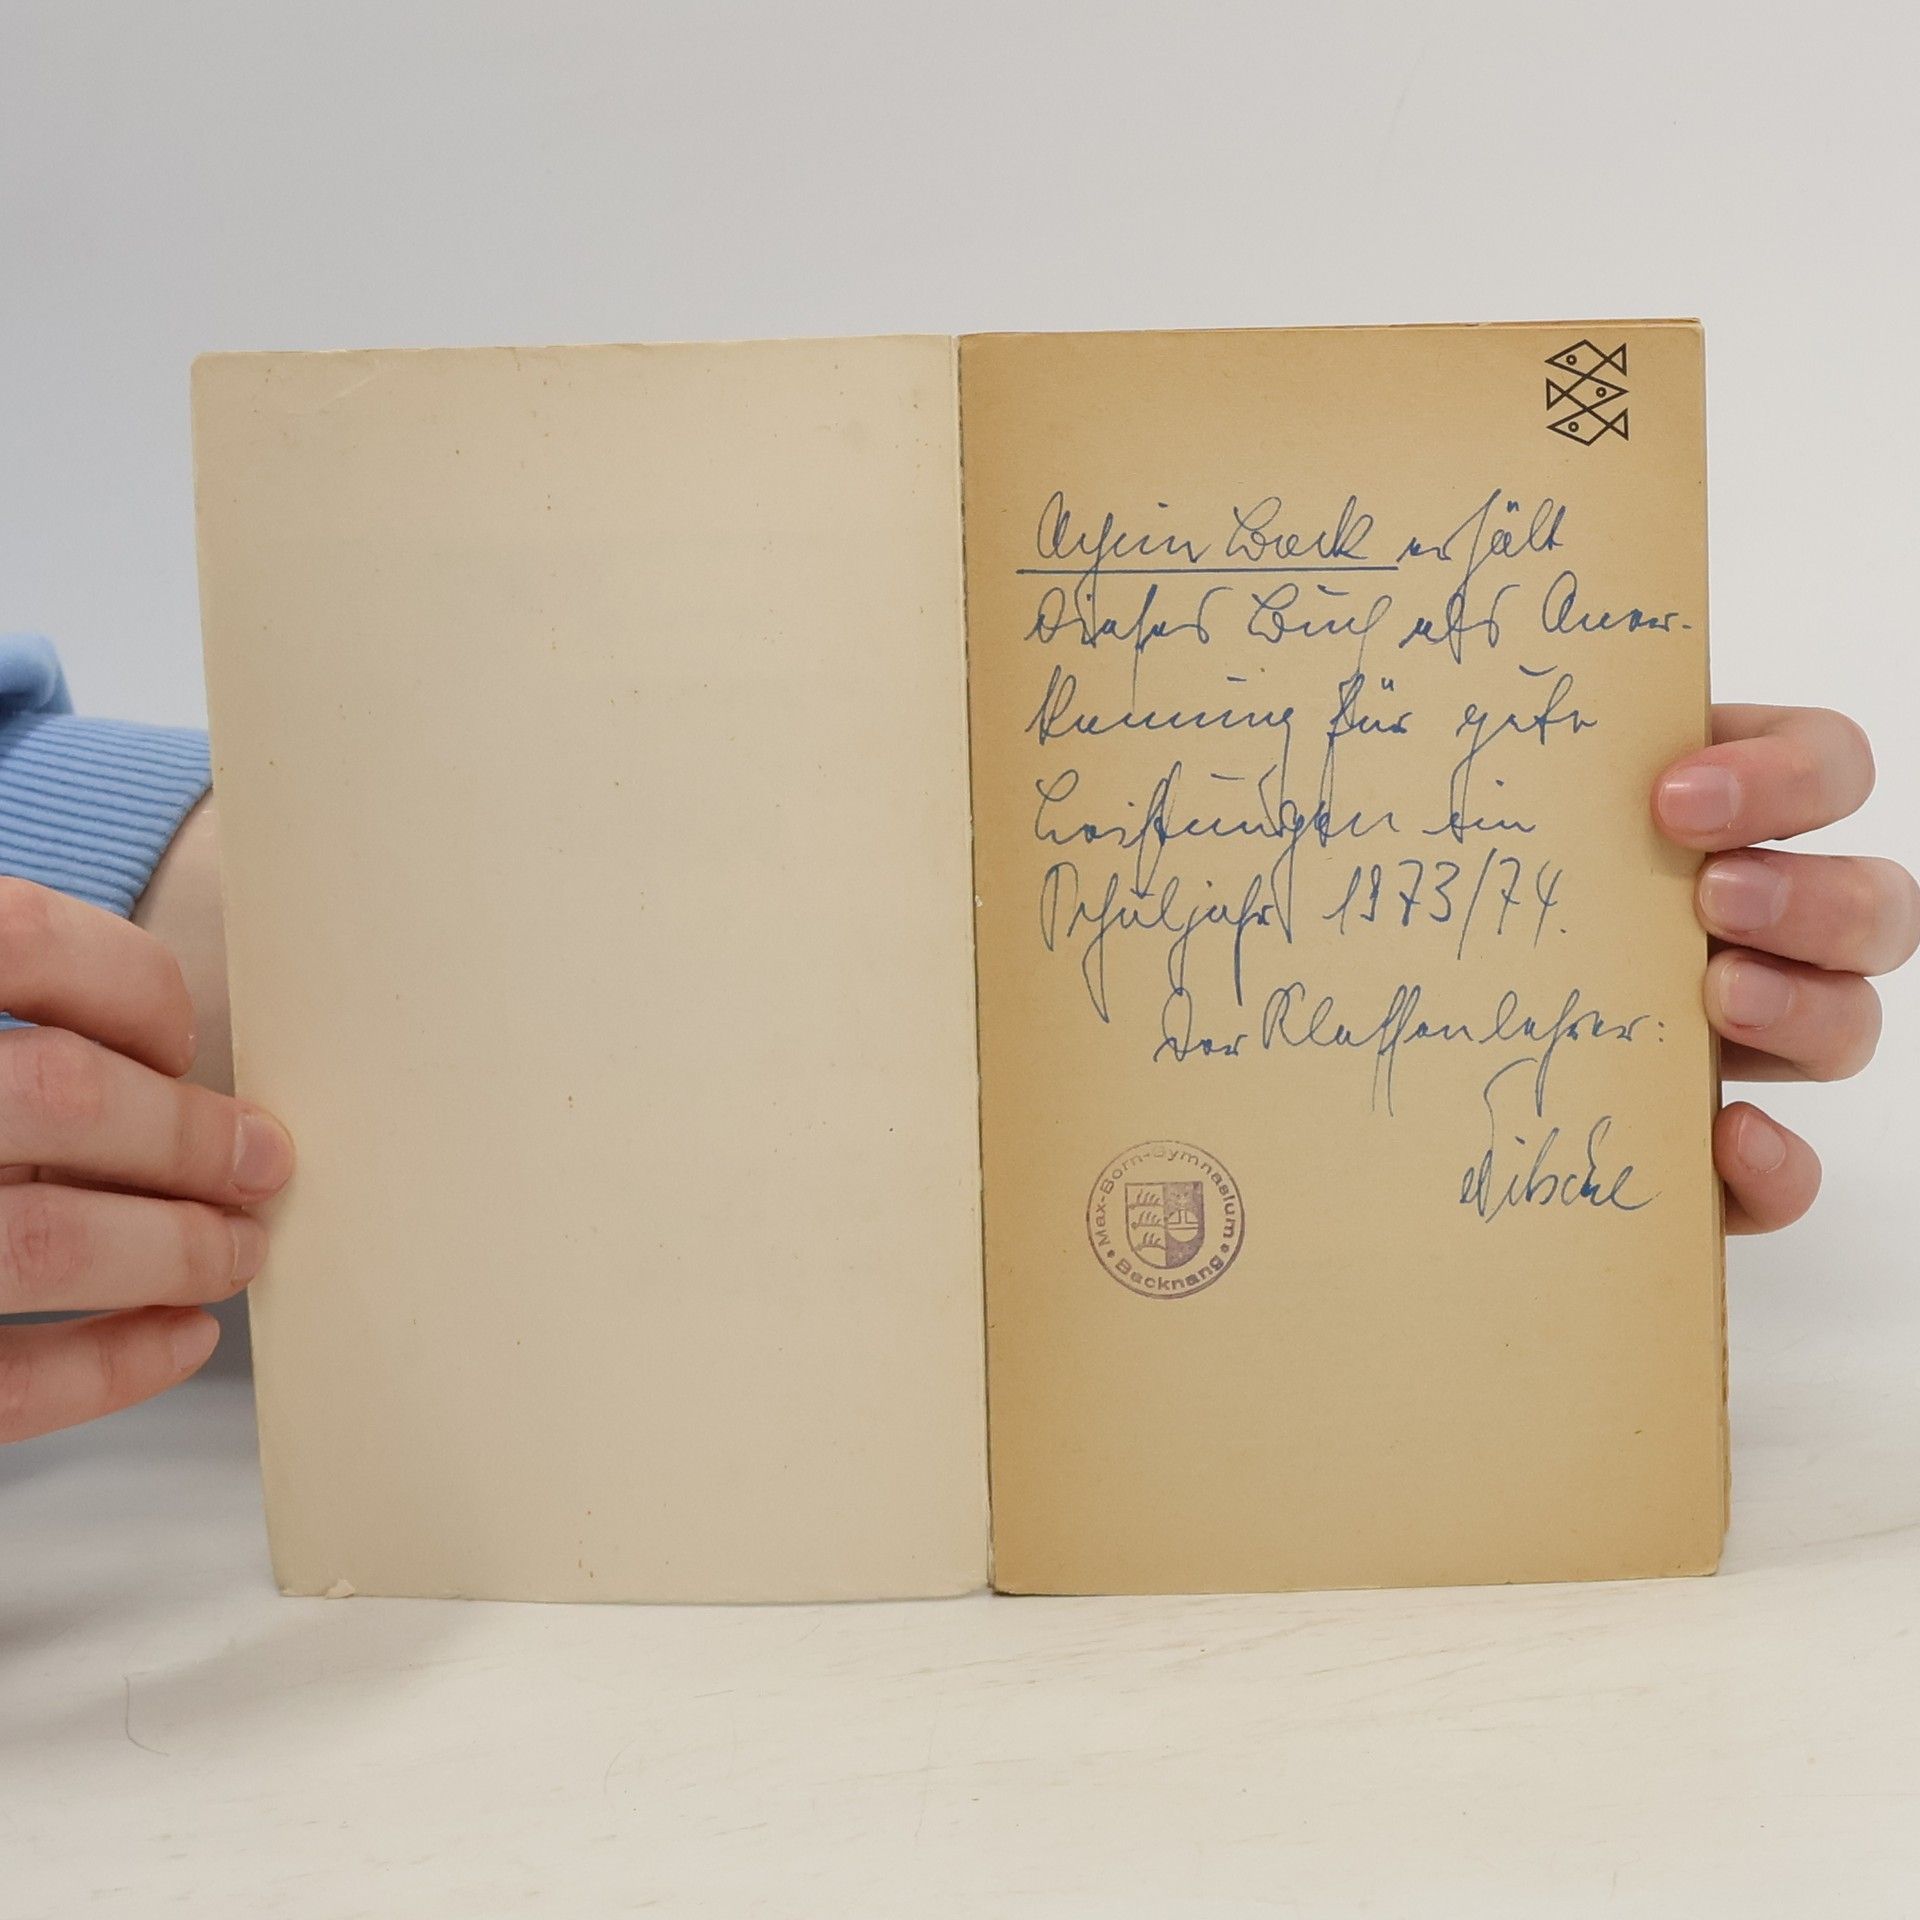 Achim Bock erhält
dieses Buch als Aner-
kennung für gute
Leistungen im
Schuljahr 1973/74.
Der Klassenlehrer:
Max-Born-Gymnasium
Backnang